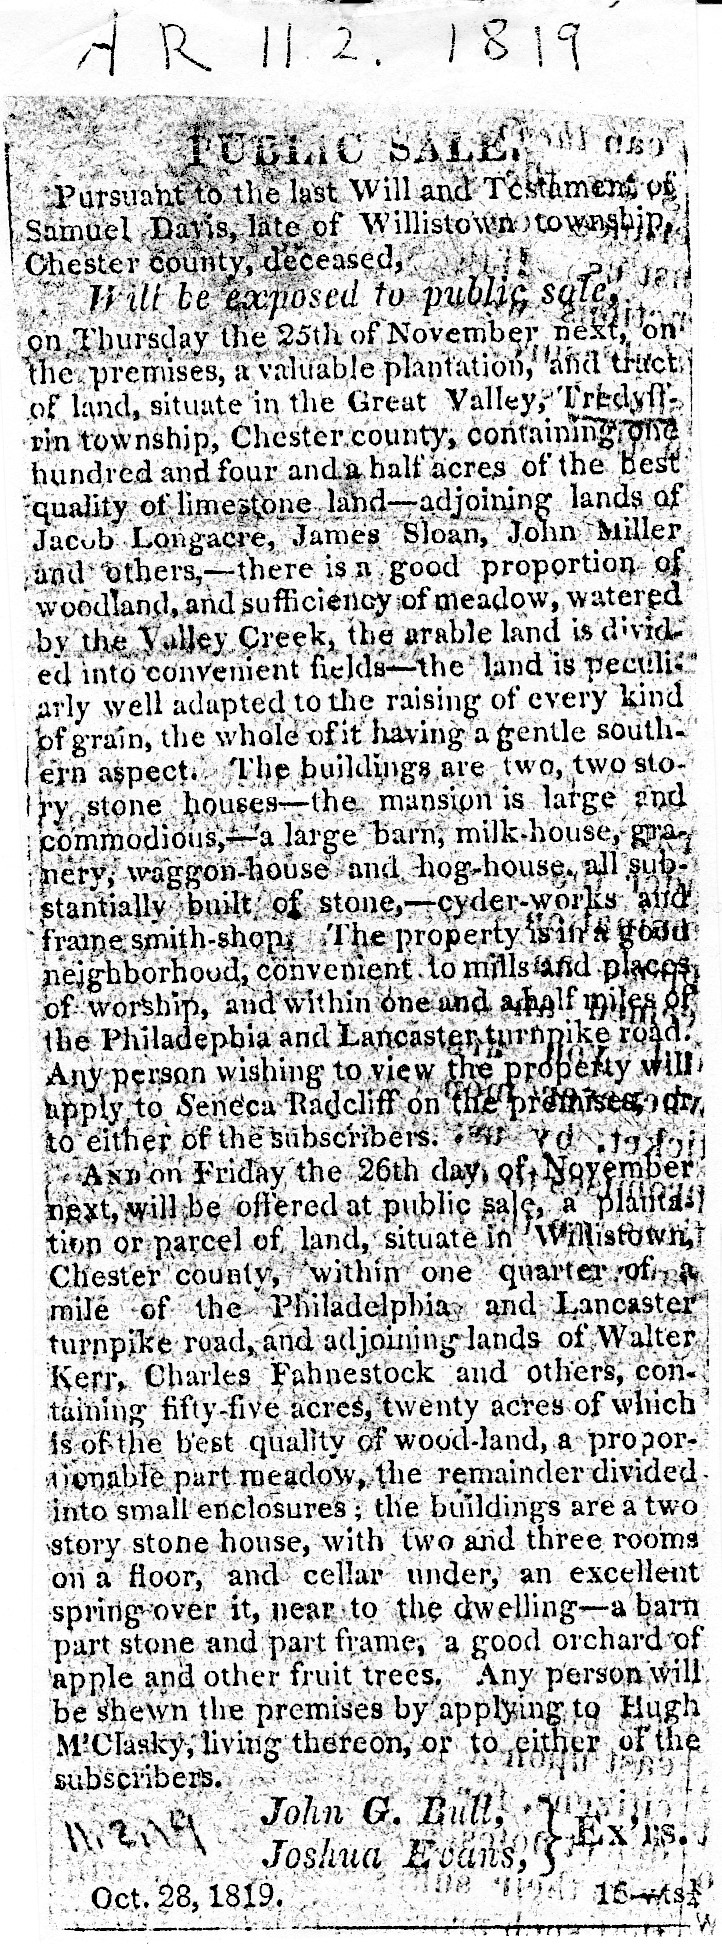 AR 11.2.1819
PUBLIC SALE.
Pursuant to the last Will and Testament of
Samuel Davis, late of Willistown township,
Chester county, deceased,
Will be exposed to public sale,
on Thursday the 25th of November next, on
the premises, a valuable plantation, and tract
of land, situate in the Great Valley, Tredyff-
rin township, Chester county, containing one
hundred and four and a half acres of the best
quality of limestone land—adjoining lands of
Jacob Longacre, James Sloan, John Miller
and others,—there is a good proportion of
woodland, and sufficiency of meadow, watered
by the Valley Creek, the arable land is divid-
ed into convenient fields—the land is peculi-
arly well adapted to the raising of every kind
of grain, the whole of it having a gentle south-
ern aspect. The buildings are two, two sto-
ry stone houses—the mansion is large and
commodious,—a large barn, milk-house, gra-
nery, waggon-house and hog-house, all sub-
stantially built of stone,—cyder-works and
frame smith-shop. The property is in a good
neighborhood, convenient to mills and places
of worship, and within one and a half miles of
the Philadephia and Lancaster turnpike road.
Any person wishing to view the property will
apply to Seneca Radcliff on the premises, or
to either of the subscribers.
AND on Friday the 26th day of November
next, will be offered at public sale, a planta-
tion or parcel of land, situate in Willistown,
Chester county, within one quarter of a
mile of the Philadelphia and Lancaster
turnpike road, and adjoining lands of Walter
Kerr, Charles Fahnestock and others, con-
taining fifty-five acres, twenty acres of which
is of the best quality of wood-land, a propor-
tionable part meadow, the remainder divided
into small enclosures; the buildings are a two
story stone house, with two and three rooms
on a floor, and cellar under, an excellent
spring over it, near to the dwelling—a barn
part stone and part frame, a good orchard of
apple and other fruit trees. Any person will
be shewn the premises by applying to Hugh
M'Clasky, living thereon, or to either of the
subscribers.
John G. Bull,
Joshua Evans, } Ex'rs.
11.2.19
Oct. 28, 1819.